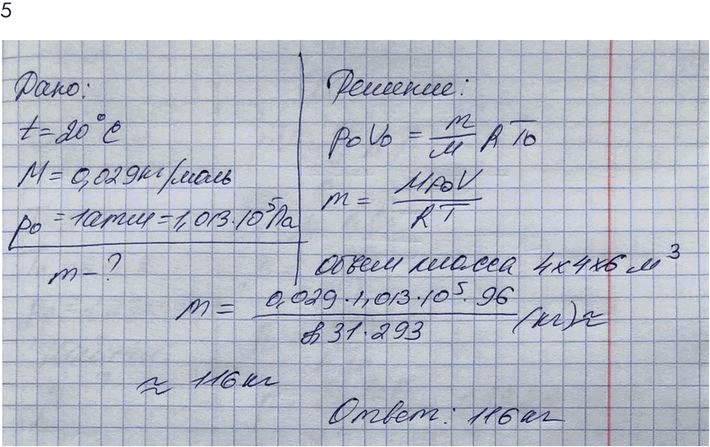 5
Дано:
t = 20°C
M = 0,029кг/моль
p₀ = 1атм = 1,013·10⁵Па
m - ?
Решение:
p₀V₀ = m/M RT₀
m = Mp₀V/RT
Объем класса 4x4x6 м³
m = 0,029·1,013·10⁵·96/8,31·293 (кг) ≈
≈ 116кг
Ответ: 116кг